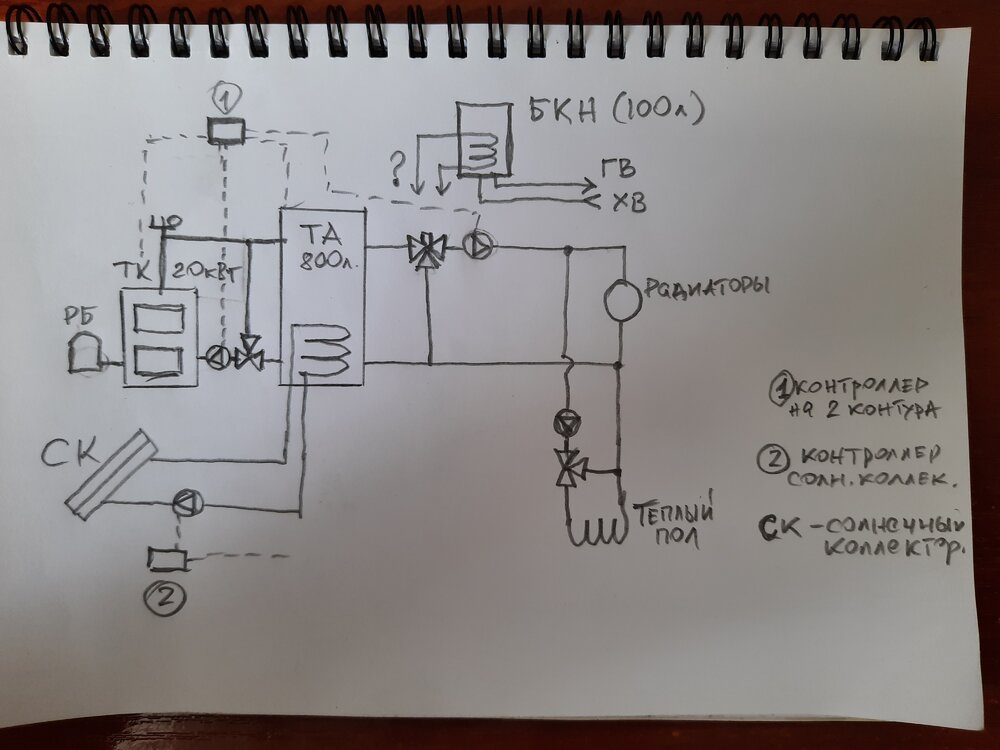 1
БКН (100л)
?
ГВ
ХВ
ТА
800л.
ТК 20кВТ
РБ
РАДИАТОРЫ
1 КОНТРОЛЛЕР
НА 2 КОНТУРА
СК
2 КОНТРОЛЛЕР
СОЛН. КОЛЛЕК.
ТЕПЛЫЙ
ПОЛ
СК - СОЛНЕЧНЫЙ
КОЛЛЕКТОР.
2